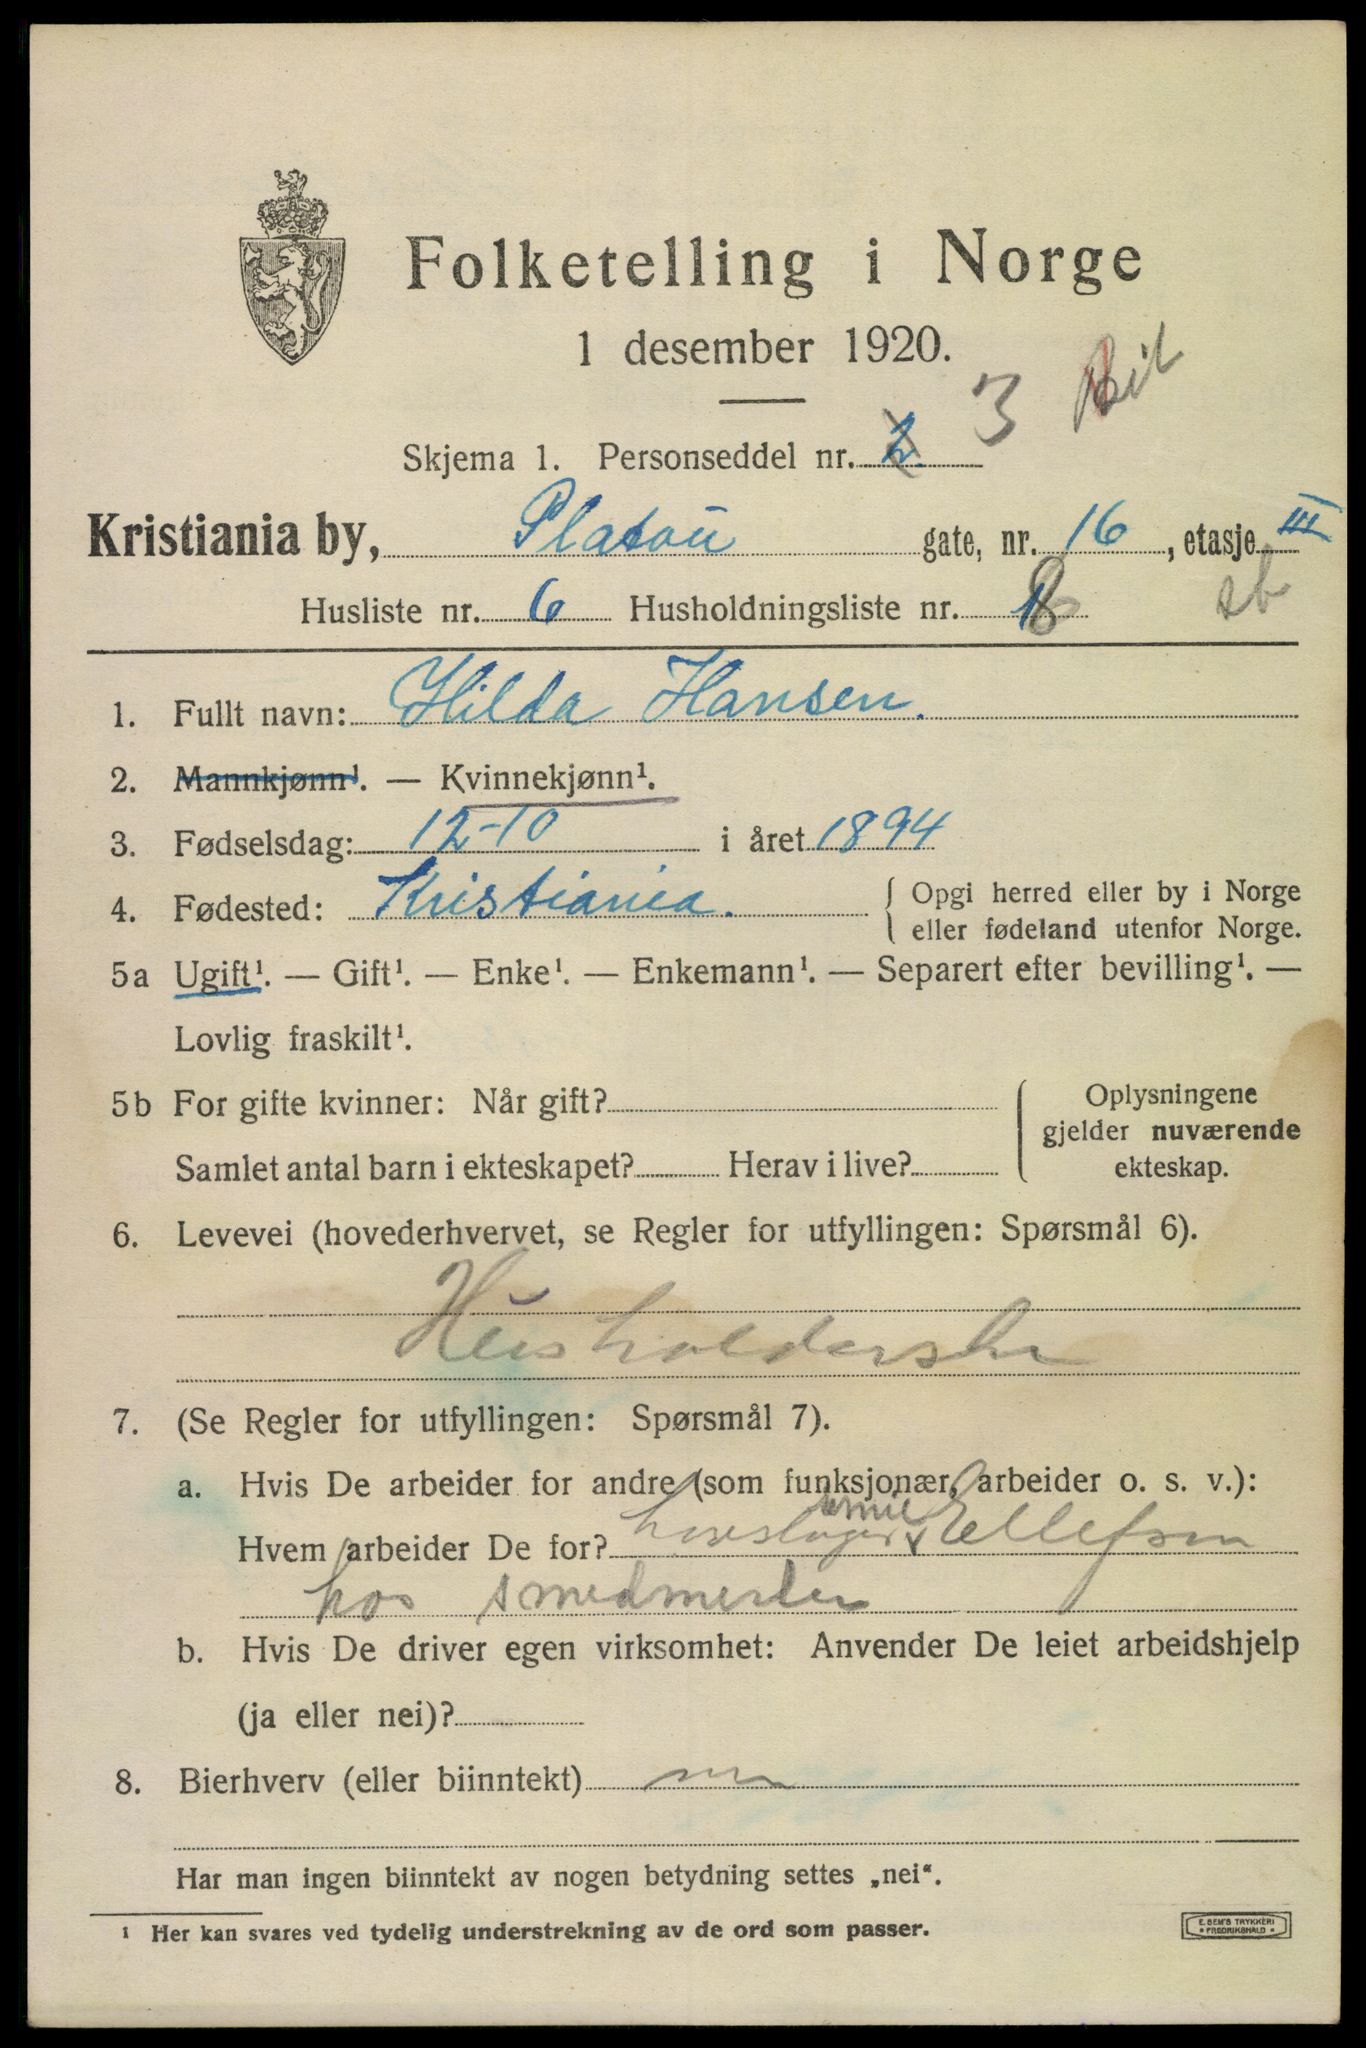 Folketelling i Norge
1 desember 1920.
3
Skjema 1. Personseddel nr. 2
Kristiania by, Platou gate, nr. 16, etasje III
Husliste nr. 6 Husholdningsliste nr. 8
1. Fullt navn: Hilda Hansen.
2. Mannkjønn¹. — Kvinnekjønn¹.
3. Fødselsdag: 12-10 i året 1894
4. Fødested: Kristiania. { Opgi herred eller by i Norge
eller fødeland utenfor Norge.
5a Ugift¹. — Gift¹. — Enke¹. — Enkemann¹. — Separert efter bevilling¹. —
Lovlig fraskilt¹.
5b For gifte kvinner: Når gift? { Oplysningene
gjelder nuværende
Samlet antal barn i ekteskapet? Herav i live?
ekteskap.
6. Levevei (hovederhvervet, se Regler for utfyllingen: Spørsmål 6).
Husholderske
7. (Se Regler for utfyllingen: Spørsmål 7).
a. Hvis De arbeider for andre (som funksjonær, arbeider o. s. v.):
Hvem arbeider De for? Ellefsen
hos smedmester
b. Hvis De driver egen virksomhet: Anvender De leiet arbeidshjelp
(ja eller nei)?
8. Bierhverv (eller biinntekt) nei
Har man ingen biinntekt av nogen betydning settes „nei“.
¹ Her kan svares ved tydelig understrekning av de ord som passer.
E. SEM'S TRYKKERI
FREDRIKSHALD